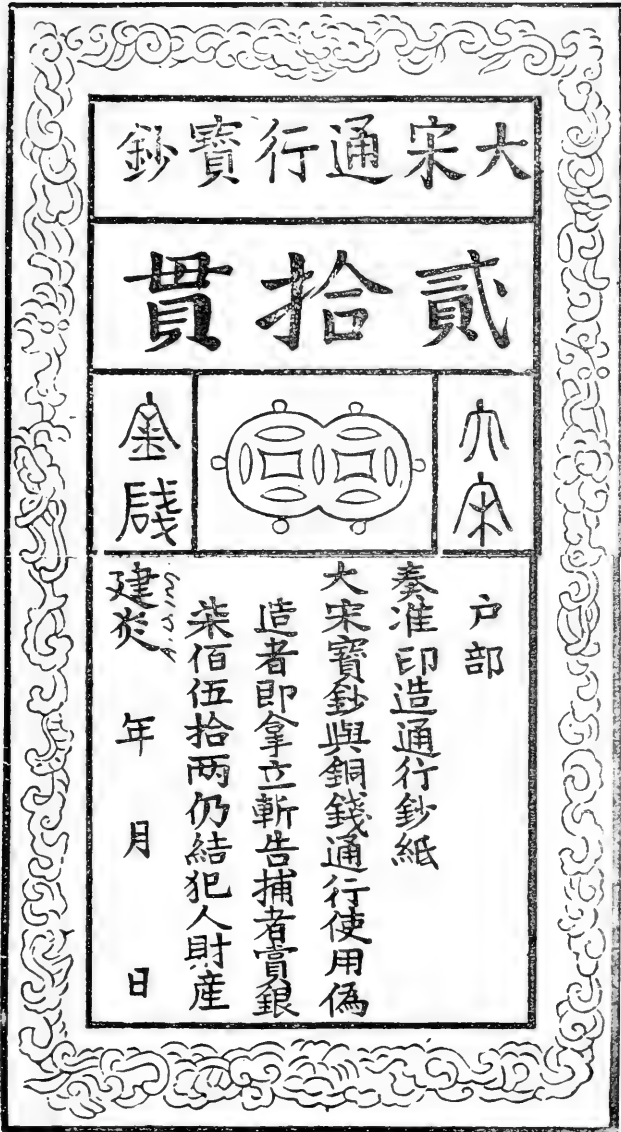 大宋通行寶鈔
貳拾貫
大宋
金牋
戶部
奏准印造通行鈔紙
大宋寶鈔與銅錢通行使用偽
造者即拿立斬告捕者賞銀
柒佰伍拾两仍結犯人財産
建炎 年 月 日